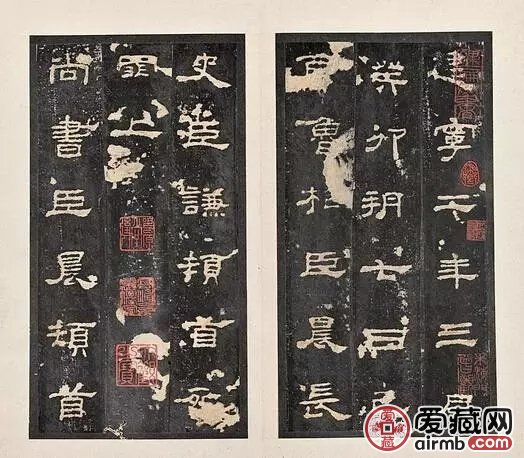 建寧二年三月
癸卯朔七日己
酉魯相臣晨長
史臣謙頓首死
罪上
尚書臣晨頓首
爱藏网
airmb.com